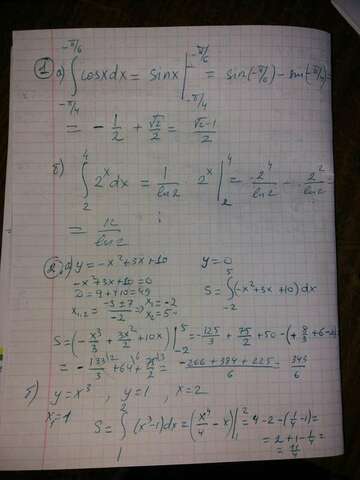 ① а) ∫_{-π/4}^{-π/6} cosxdx = sinx |_{-π/4}^{-π/6} = sin(-π/6) - sin(-π/4) =
= - 1/2 + √2/2 = √2-1/2
б) ∫_2^4 2^x dx = 1/ln2 2^x |_2^4 = 2^4/ln2 - 2^2/ln2 =
= 12/ln2
②. а) y = -x²+3x+10 y=0
-x²+3x+10=0 S = ∫_{-2}^5 (-x²+3x+10) dx
D = 9+40=49
x₁,₂ = -3±7/-2 → x₁ = -2 x₂ = 5
S = (-x³/3 + 3x²/2 + 10x) |_{-2}^5 = -125/3 + 75/2 + 50 - (+8/3 + 6 -
= - 133/3 + 64 + 75/2 = -266+384+225/6 = 343/6
б) y = x³ , y=1 , x=2
x₁=1 S = ∫_1^2 (x³-1)dx = (x⁴/4 - x) |_1^2 = 4-2-(1/4-1) =
= 2+1-1/4 =
= 11/4